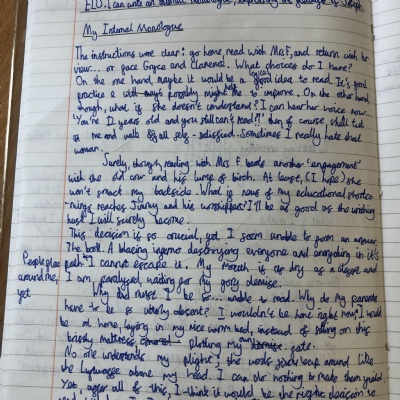 ELO: I can write an internal monologue, expressing the
My Internal Monologue
The instructions were clear: go home, read with Mrs F, and return with her
view... or face Gryce and Clarence. What choices do I have?
On the one hand, maybe it would be a logical idea to read. It's good
practice & might possibly help me to improve. On the other hand,
though, what if she doesn't understand? I can hear her voice now...
'You're 12 years old and you still can't read?!' Then of course, she'll tut
at me and walk off all self-satisfied. Sometimes I really hate that
woman.
Surely, though, reading with Mrs F beats another 'engagement'
with the old cow and his lump of birch. At least, (I hope) she
won't smack my backside. What if news of my educational shortco
-mings reaches Jimmy and his worshippers? I'll be as good as the
husk I will surely become.
This decision is so crucial, yet I seem unable to form an answer.
The bolt. A blazing inferno destroying everyone and everything in it's
path. I cannot escape it. My mouth is as dry as a
I am paralysed, waiting for my gory demise.
People flee
around me,
yet
Why and must I be so... unable to read. Why do my parents
have to be so utterly absent? I wouldn't be here right now; I would
be at home, laying in my nice warm bed, instead of sitting on this
bristly mattress plotting my own fate.
No one understands my plight; the words around like
the above my head. I can do nothing to make them yield.
Yet, after all of this, I think it would be the right decision to